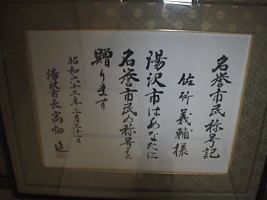 名誉市民称号記
佐竹義輔様
湯沢市はあなたに
名誉市民の称号を
贈ります
昭和六十三年三月
湯沢市長高畑